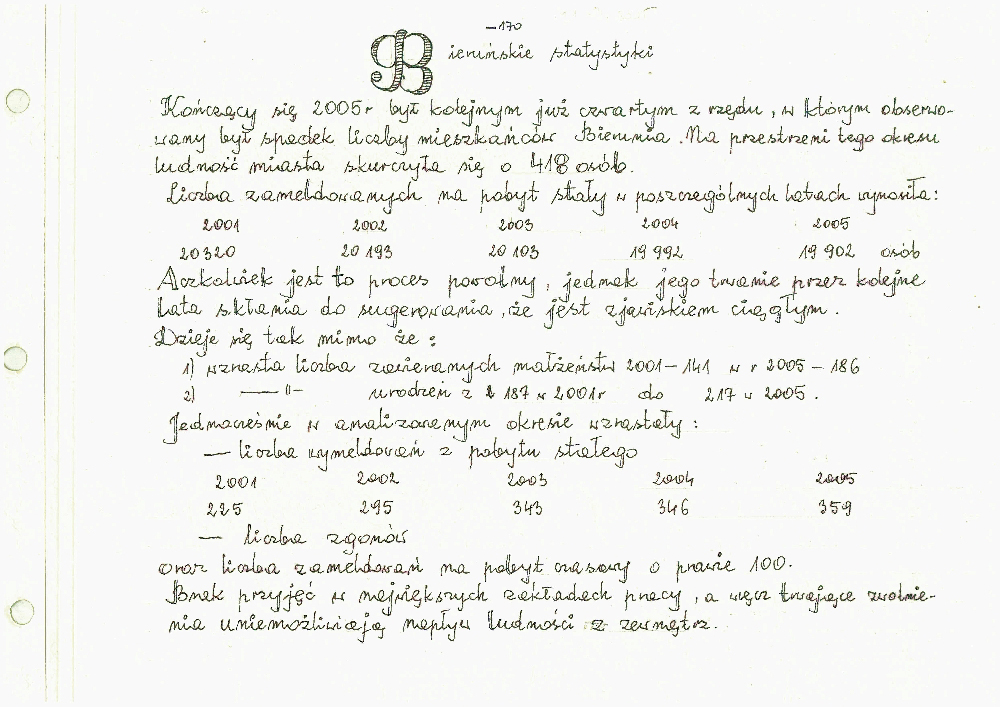 -170
Bieruńskie statystyki
Kończący się 2005r był kolejnym już czwartym z rzędu, w którym obserwo-
wany był spadek liczby mieszkańców Bierunia. Na przestrzeni tego okresu
ludność miasta skurczyła się o 418 osób.
Liczba zameldowanych na pobyt stały w poszczególnych latach wynosiła:
2001 2002 2003 2004 2005
20320 20 193 20 103 19 992 19 902 osób
Aczkolwiek jest to proces powolny, jednak jego trwanie przez kolejne
lata skłania do sugerowania, że jest zjawiskiem ciągłym.
Dzieje się tak mimo że:
1) wzrasta liczba zawieranych małżeństw 2001-141 w r 2005-186
2) —"- urodzeń z 187 w 2001r do 217 w 2005.
Jednocześnie w analizowanym okresie wzrastały:
— liczba wymeldowań z pobytu stałego
2001 2002 2003 2004 2005
225 295 343 346 359
— liczba zgonów
oraz liczba zameldowań na pobyt czasowy o prawie 100.
Brak przyjęć w największych zakładach pracy, a wręcz trwające zwolnie-
nia uniemożliwiają napływ ludności z zewnątrz.